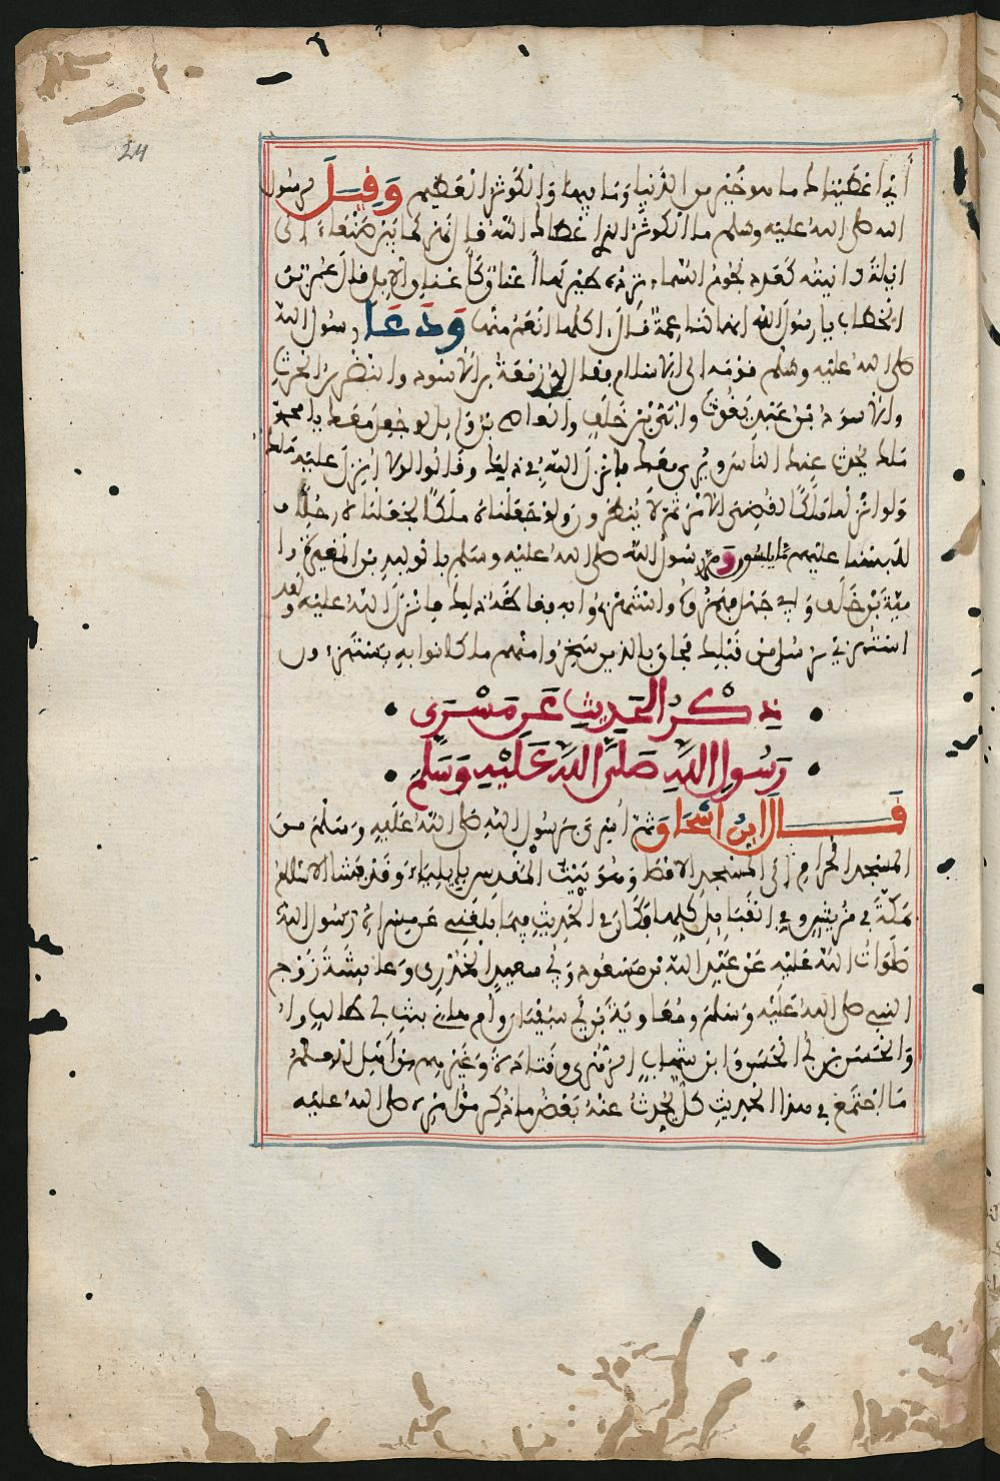 24
أني أعطيناك ما هو خير من الدنيا وما فيها والكوثر العظيم وقيل لرسول
الله صلى الله عليه وسلم ما الكوثر الذي أعطاك الله قال نهر كما بين صنعاء إلى
ايلة ءانيته كعدد نجوم السماء ترده طير لها أعناق كأعناق الإبل قال عمر بن
الخطاب يا رسول الله إنها لناعمة قال ءاكلها أنعم منها ودعا رسول الله
صلى الله عليه وسلم قومه إلى الإسلام فقال له زمعة بن الأسود والنضر بن الحرث
والأسود بن عبد يغوث وأبي بن خلف والعاص بن وايل لو جعل معك يا محمد
ملك يحدث عنك الناس ويرى معك فأنزل الله في ذلك وقالوا لولا أنزل عليه ملك
ولو انزلنا ملكا لقضي الأمر ثم لا ينظرون ولو جعلناه ملكا لجعلناه رجلا و
للبسنا عليهم ما يلبسون ومر رسول الله صلى الله عليه وسلم بالوليد بن المغيرة وا
مية بن خلف وأبي جهل فهمزوه واستهزءوا به فغاظه ذلك فأنزل الله عليه ولقد
استهزئ برسل من قبلك فحاق بالذين سخروا منهم ما كانوا به يستهزءون
ذكر الحديث عن مسرى
رسول الله صلى الله عليه وسلم
قال ابن اسحاق ثم أسري برسول الله صلى الله عليه وسلم من
المسجد الحرام إلى المسجد الاقصا وهو بيت المقدس بإيلياء وقد فشا الاسلام
بمكة في قريش وفي القبايل كلها فكان في الحديث فيما بلغني عن مسراه رسول الله
صلوات الله عليه عن عبد الله بن مسعود وأبي سعيد الخدري وعايشة زوج
النبي صلى الله عليه وسلم ومعاوية بن أبي سفيان وأم هانئ بنت أبي طالب
والحسن بن أبي الحسن وابن شهاب الزهري وقتادة وغيرهم من أهل العلم
ما اجتمع في هذا الحديث كل يحدث عنه بعض ما ذكر من أمره صلى الله عليه